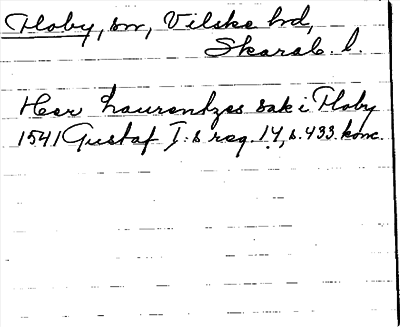 Floby, sn, Vilske hd,
Skarab. l.
Her Laurentzes sak i Floby
1541 Gustaf I:s reg. 14, s. 433. konc.